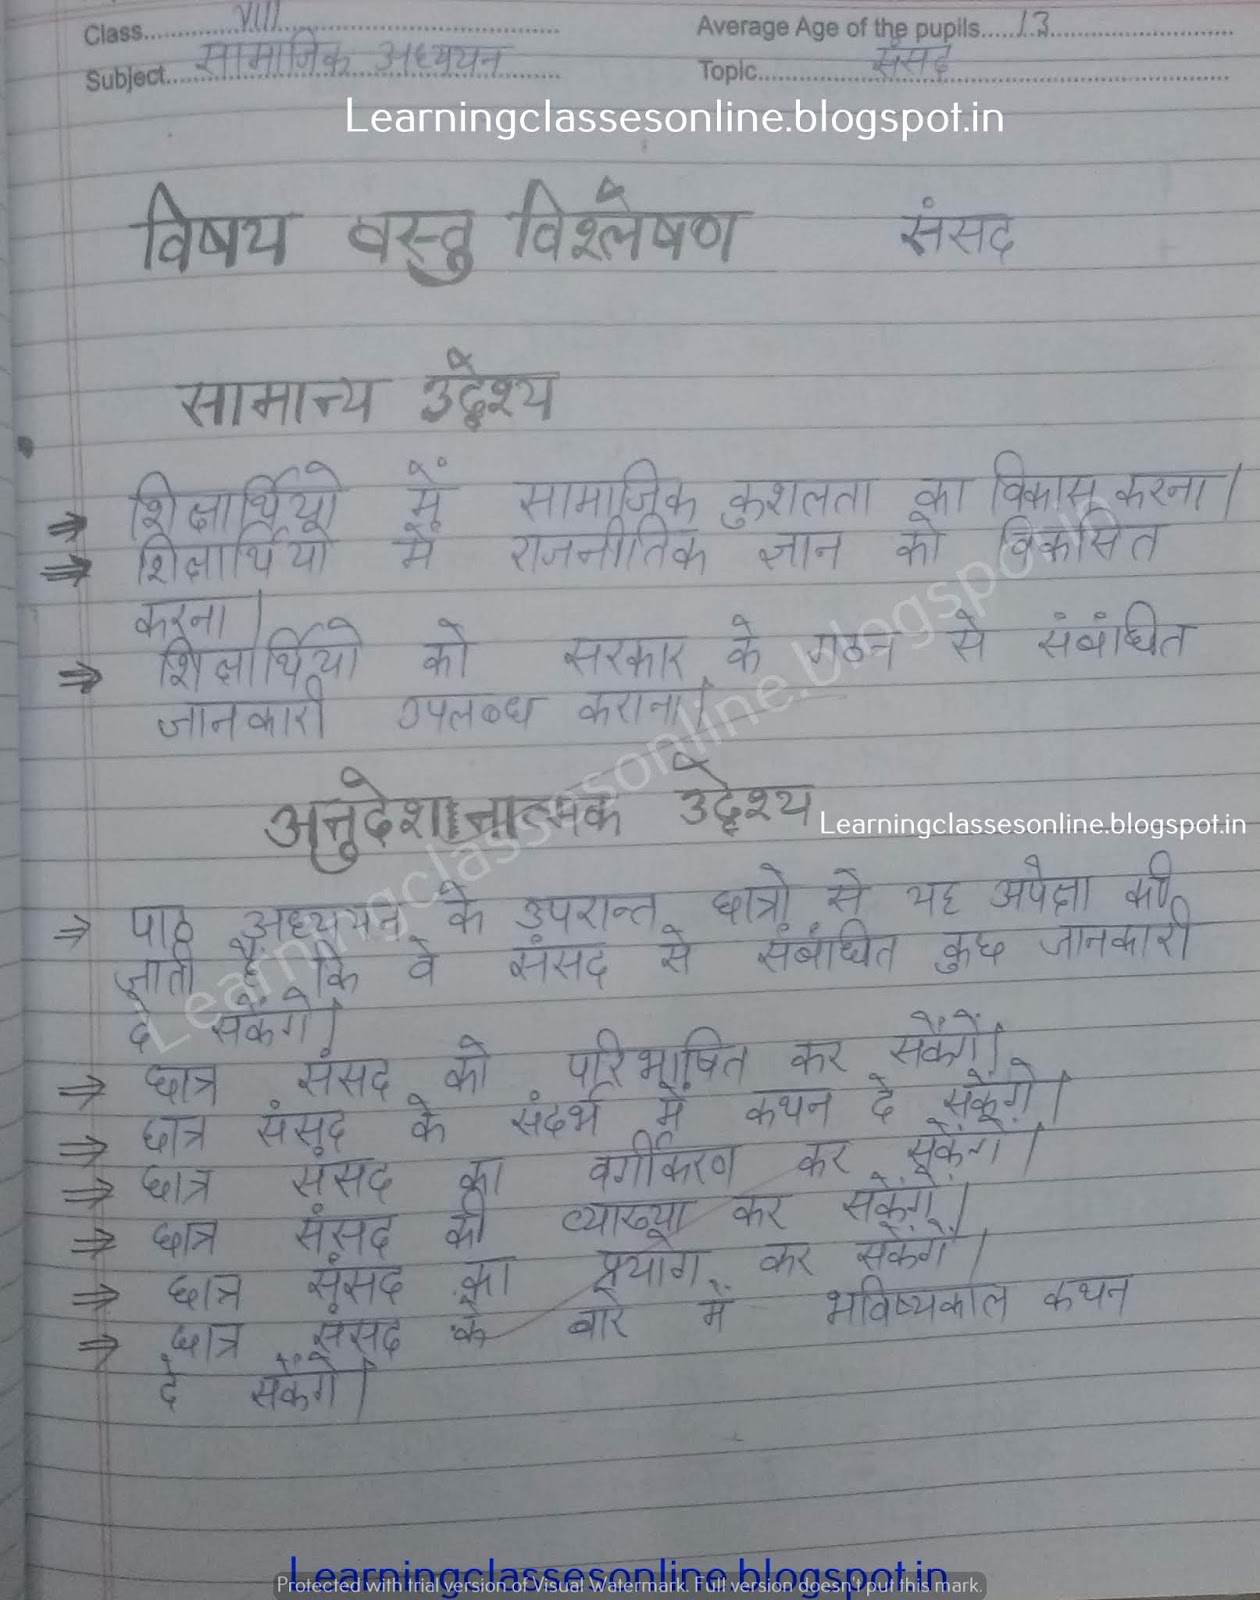 Class.....VIII..... Average Age of the pupils.....13.....
Subject.....सामाजिक अध्ययन..... Topic.....संसद.....
Learningclassesonline.blogspot.in
विषय वस्तु विश्लेषण संसद
सामान्य उद्देश्य
⇒ शिक्षार्थियो में सामाजिक कुशलता का विकास करना।
⇒ शिक्षार्थियो में राजनीतिक ज्ञान को विकसित
करना।
⇒ शिक्षार्थियो को सरकार के गठन से संबंधित
जानकारी उपलब्ध कराना।
अनुदेशानात्मक उद्देश्य
Learningclassesonline.blogspot.in
⇒ पाठ अध्ययन के उपरान्त छात्रो से यह अपेक्षा की
जाती है कि वे संसद से संबंधित कुछ जानकारी
दे सकेंगे।
⇒ छात्र संसद को परिभाषित कर सकेंगें।
⇒ छात्र संसद के संदर्भ में कथन दे सकेंगे।
⇒ छात्र संसद का वर्गीकरण कर सकेंगे।
⇒ छात्र संसद की व्याख्या कर सकेंगें।
⇒ छात्र संसद का प्रयोग कर सकेंगें।
⇒ छात्र संसद के बारे में भविष्यकाल कथन
दे सकेंगे।
Learningclassesonline.blogspot.in
Learningclassesonline.blogspot.in
Protected with trial version of Visual Watermark. Full version doesn't put this mark.